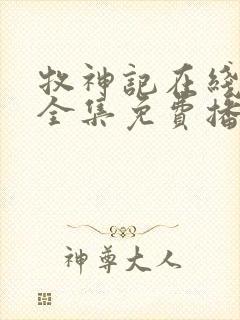 牧神記在綫
全集免費播
神尊大人